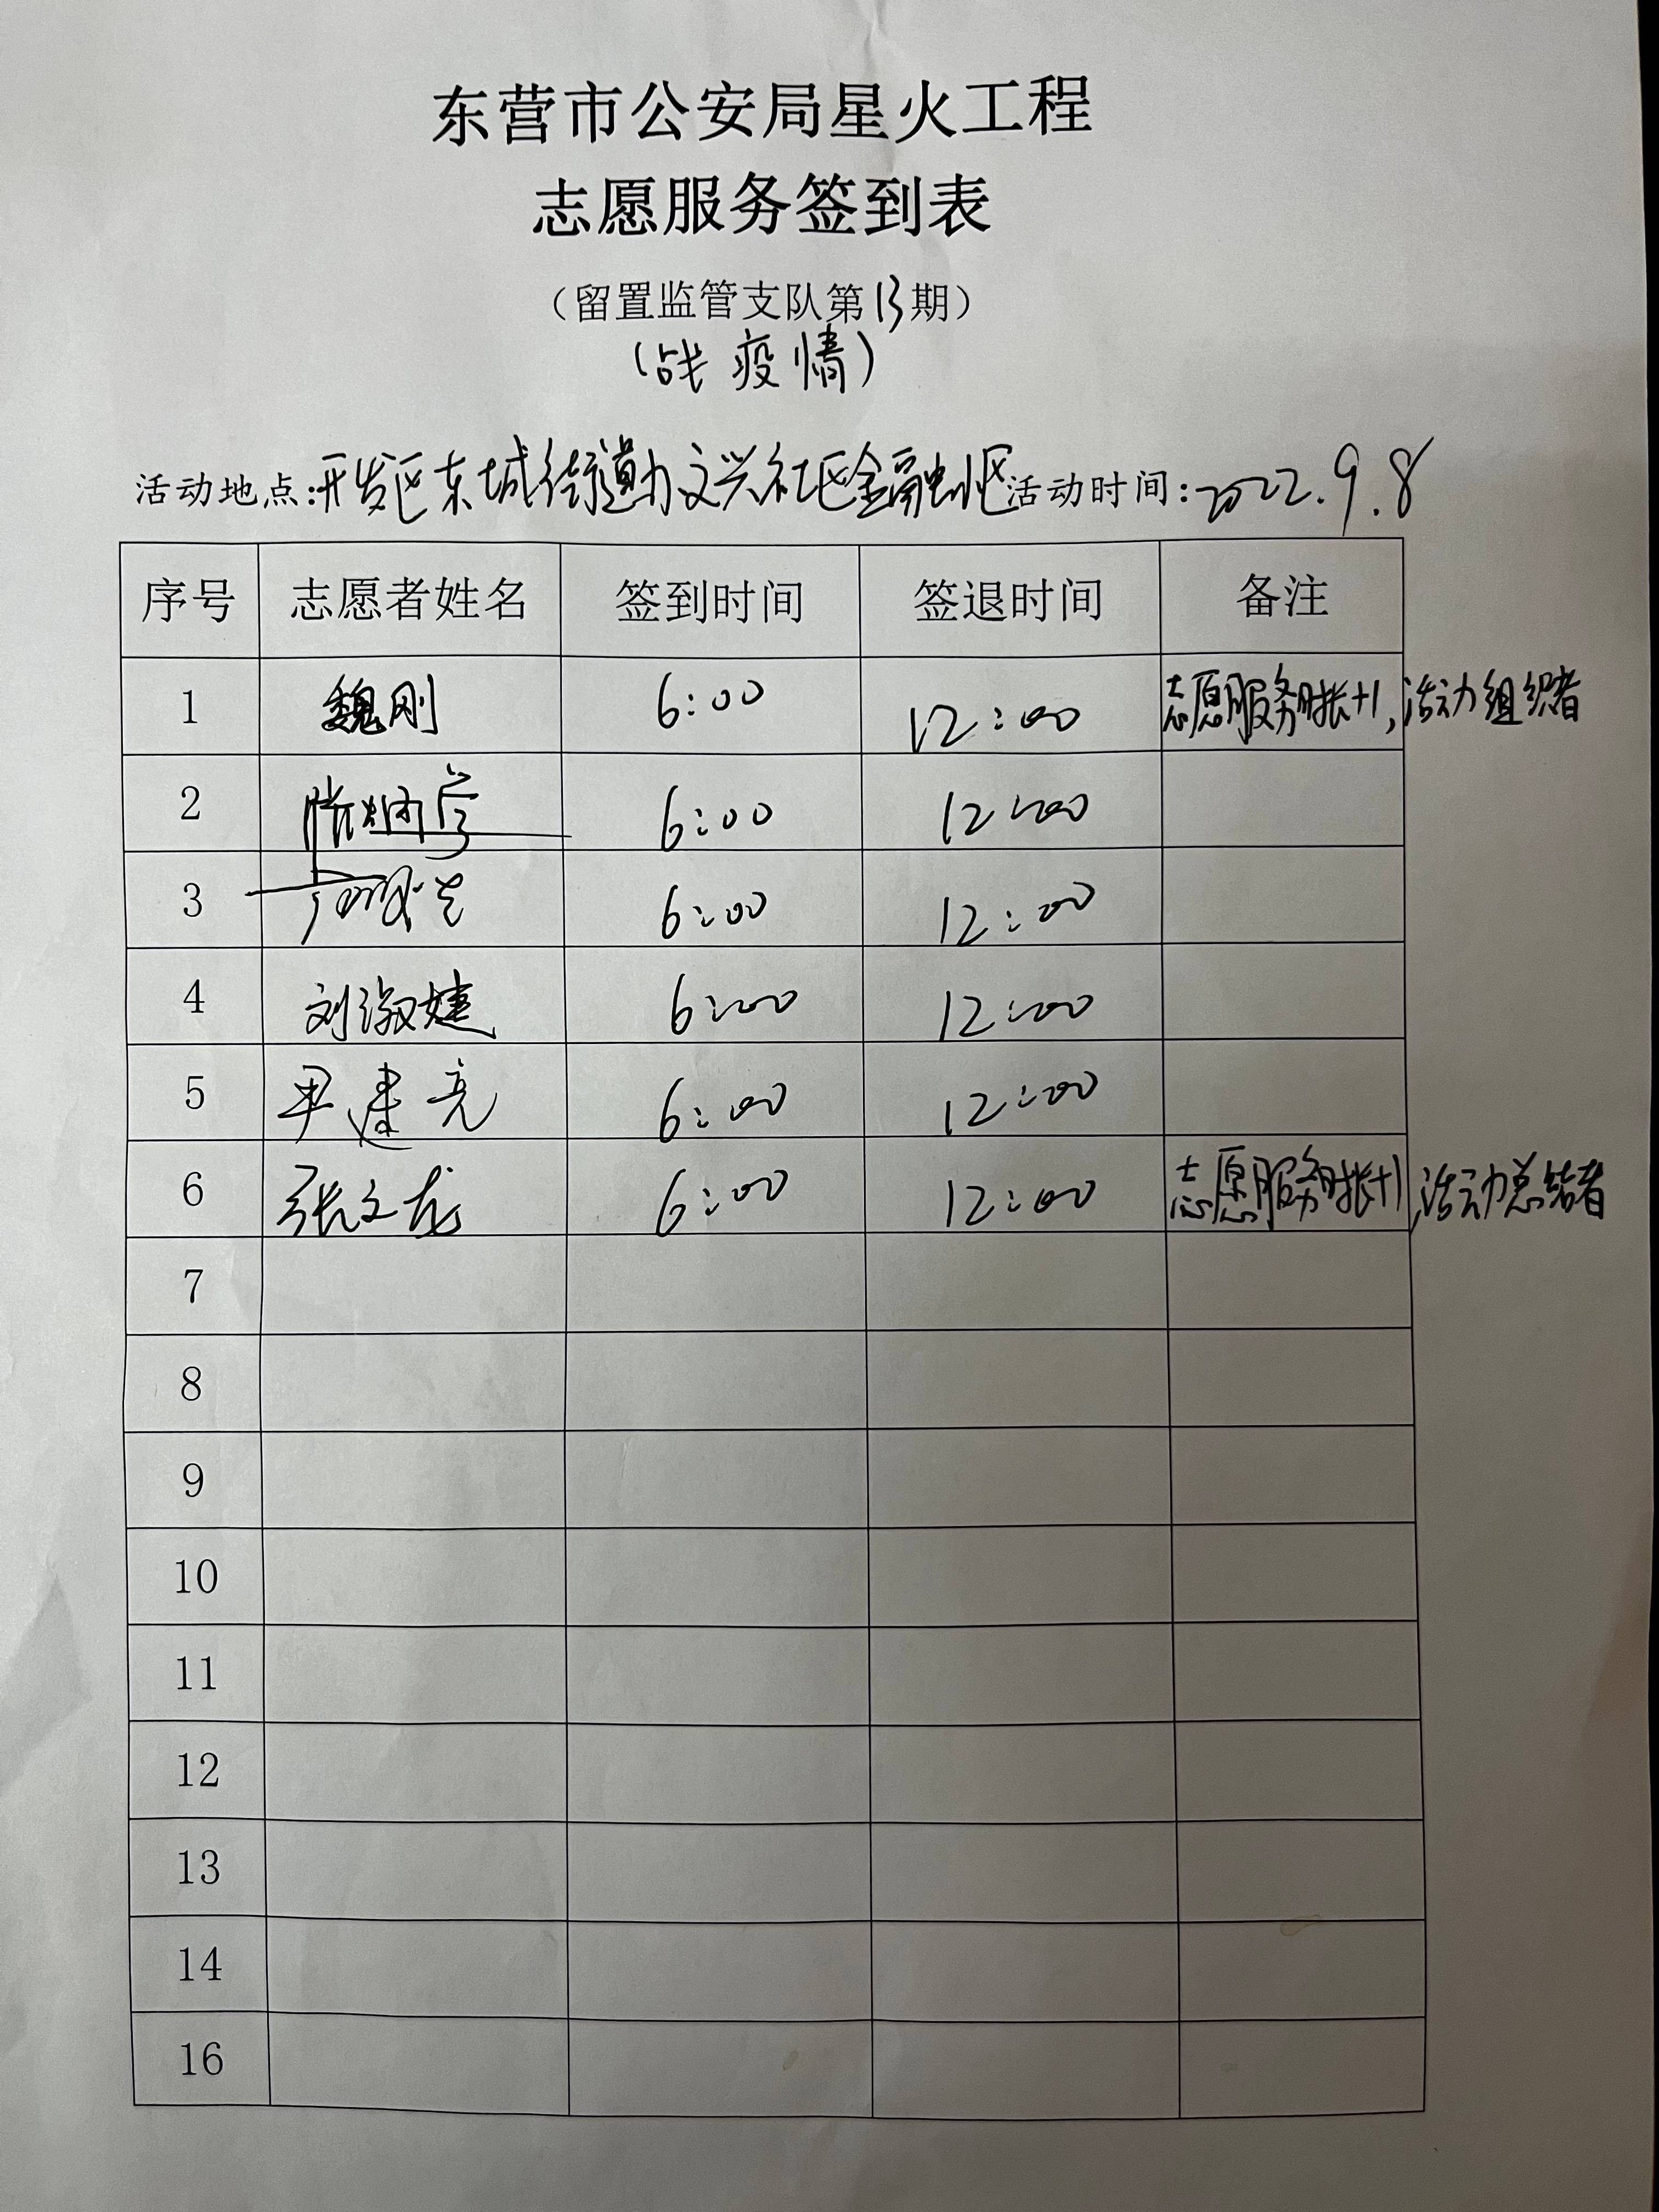 东营市公安局星火工程
志愿服务签到表
（留置监管支队第13期）
（战疫情）
活动地点:开发区东城街道办文兴社区金融小区活动时间:2022.9.8
序号 志愿者姓名 签到时间 签退时间 备注
1 魏刚 6:00 12:00 志愿服务时长+1,活动组织者
2 6:00 12:00
3 6:00 12:00
4 刘淑婕 6:00 12:00
5 尹建亮 6:00 12:00
6 张文龙 6:00 12:00 志愿服务时长+1,活动总结者
7
8
9
10
11
12
13
14
16